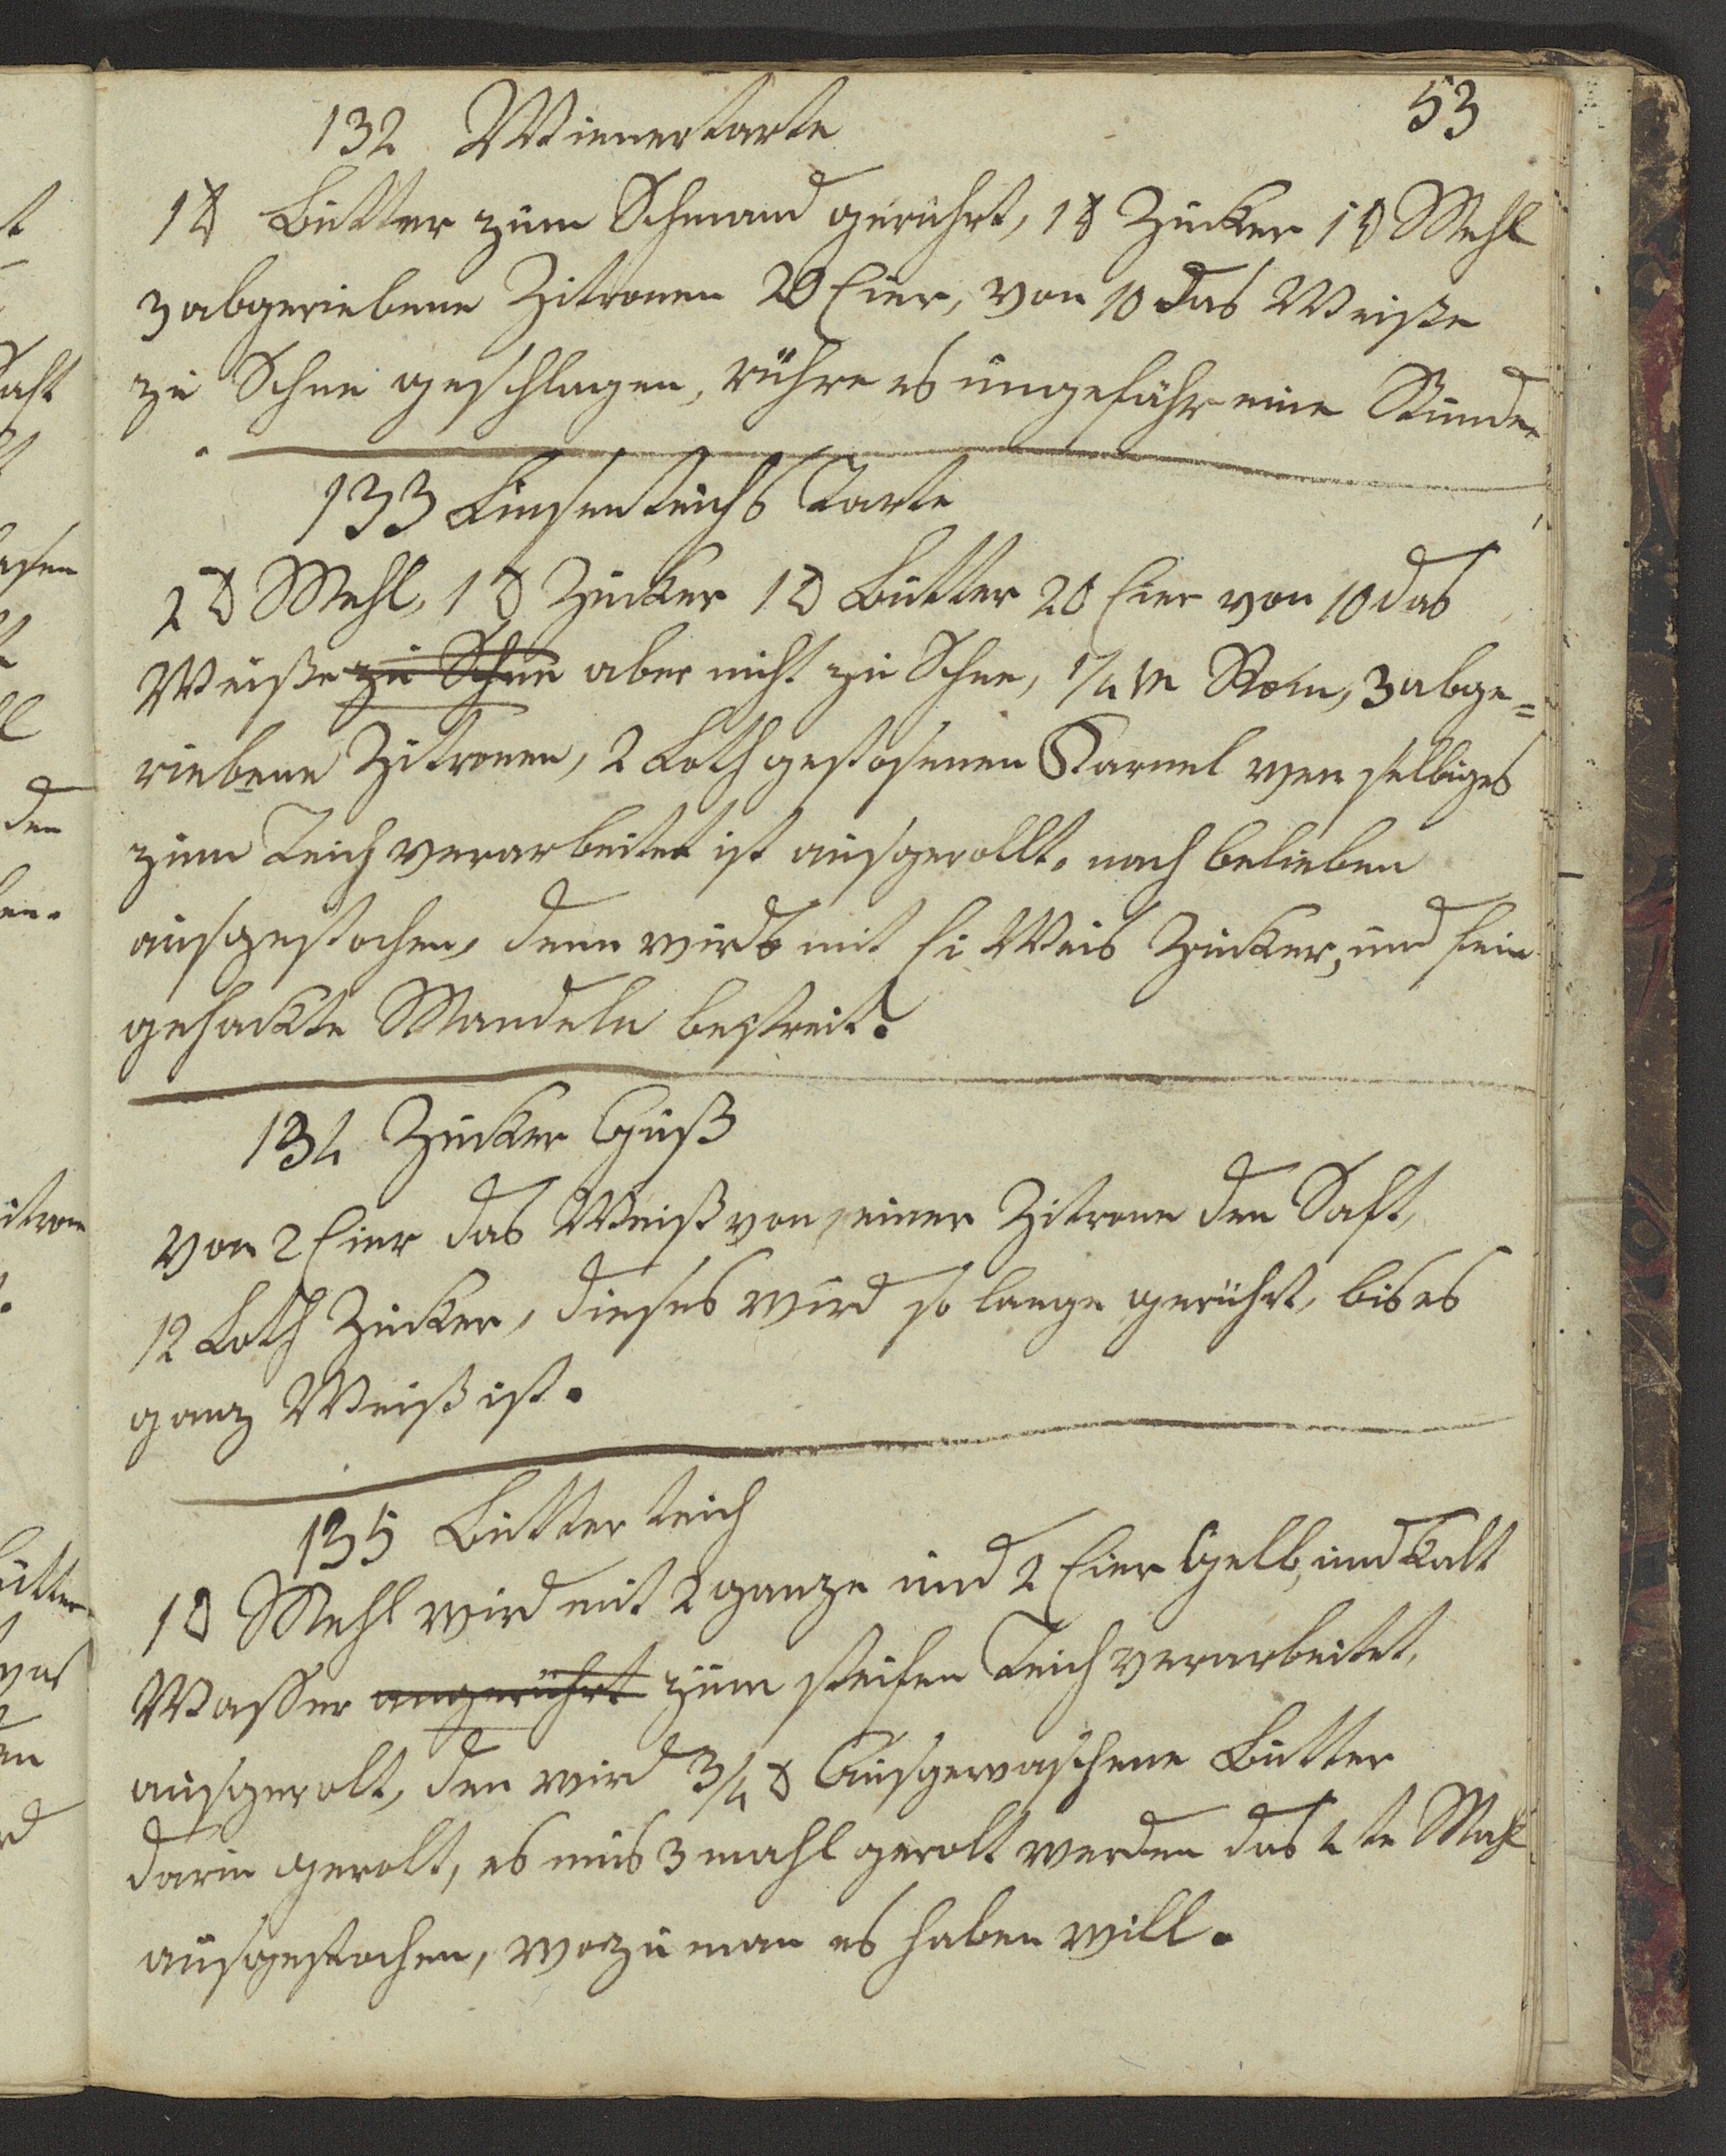 53
132 Wienertarte
1 ℔ Butter zum Schmand gerührt, 1 ℔ Zucker 1 ℔ Mehl
3 abgeriebene Zitronen 20 Eier, von 10 das Weiße
zu Schne geschlagen, rühre es ungefähr eine Stunde.
133 Linsenteichs Tarte
2 ℔ Mehl, 1 ℔ Zucker 1 ℔ Butter 20 Eier von 10 das
Weiße zu Schne aber nicht zu Schne, 1/4 Rom, 3 abge=
riebene Zitronen, 2 Loth gestosenen Karnel wen selbiges
zum Teich verarbeitet ist ausgerollt, nach belieben
ausgestochen, denn wirds mit Ei Weis Zucker, und fein
gehackte Mandeln bestreit.
134 Zucker Guß
von 2 Eier das Weiß von einer Zitrone den Saft,
12 Loth Zucker, dieses wird so lange gerührt, bis es
ganz Weiß ist.
135 Butter teich
1 ℔ Mehl wird mit 2 ganze und 2 Eier Gelb, und Kalt
Wasser angerührt zum steifen Teich verarbeitet,
ausgerolt, den wird 3/4 ℔ Ausgewaschene Butter
darin gerolt, es mus 3 mahl gerolt werden das 4te Mahl
ausgestochen, wozu man es haben will.